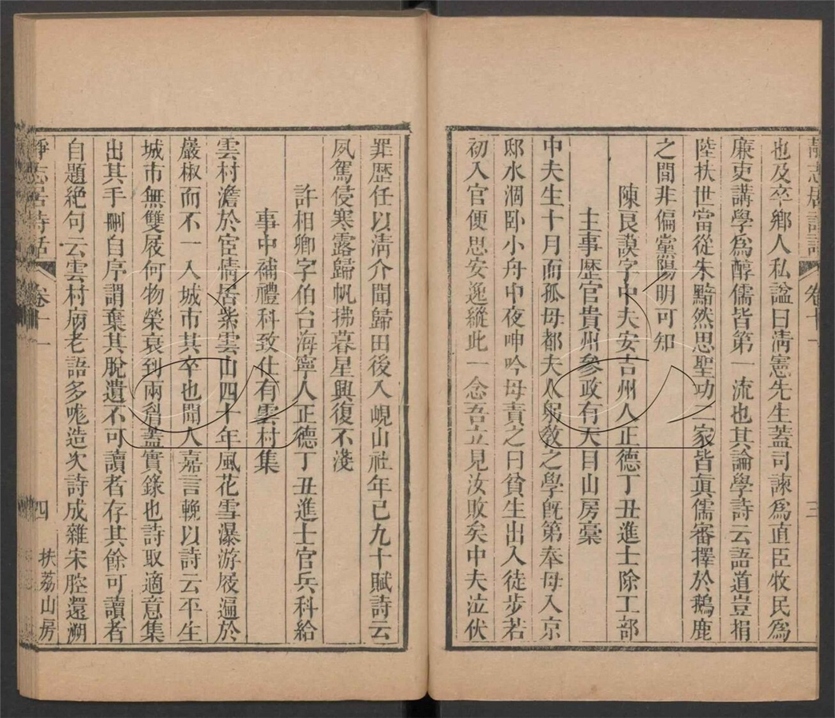 靜志居詩話 卷十一 三
也及卒鄉人私諡曰淸憲先生蓋司諫爲直臣牧民爲
廉吏講學爲醇儒皆第一流也其論學詩云語道豈捐
陸扶世當從朱黯然思聖功二家皆眞儒審擇於鵝鹿
之間非偏黨陽明可知
陳良謨字中夫安吉州人正德丁丑進士除工部
主事歷官貴州參政有天目山房藁
中夫生十月而孤母都夫人躬敎之學旣第奉母入京
邸水涸臥小舟中夜呻吟母責之曰貧生出入徒步若
初入官便思安逸縱此一念吾立見汝敗矣中夫泣伏
罪歷任以淸介聞歸田後入峴山社年已九十賦詩云
夙駕侵寒露歸帆拂暮星興復不淺
許相卿字伯台海寧人正德丁丑進士官兵科給
事中補禮科致仕有雲村集
雲村澹於宦情居紫雲山四十年風花雪瀑游屐遍於
巖椒而不一入城市其卒也聞人嘉言輓以詩云平生
城市無雙屐何物榮衰到兩眉蓋實錄也詩取適意集
出其手刪自序謂棄其脫遺不可讀者存其餘可讀者
自題絕句云雲村病老語多嘥造次詩成雜宋腔還溯
靜志居詩話 卷十一 四 扶荔山房